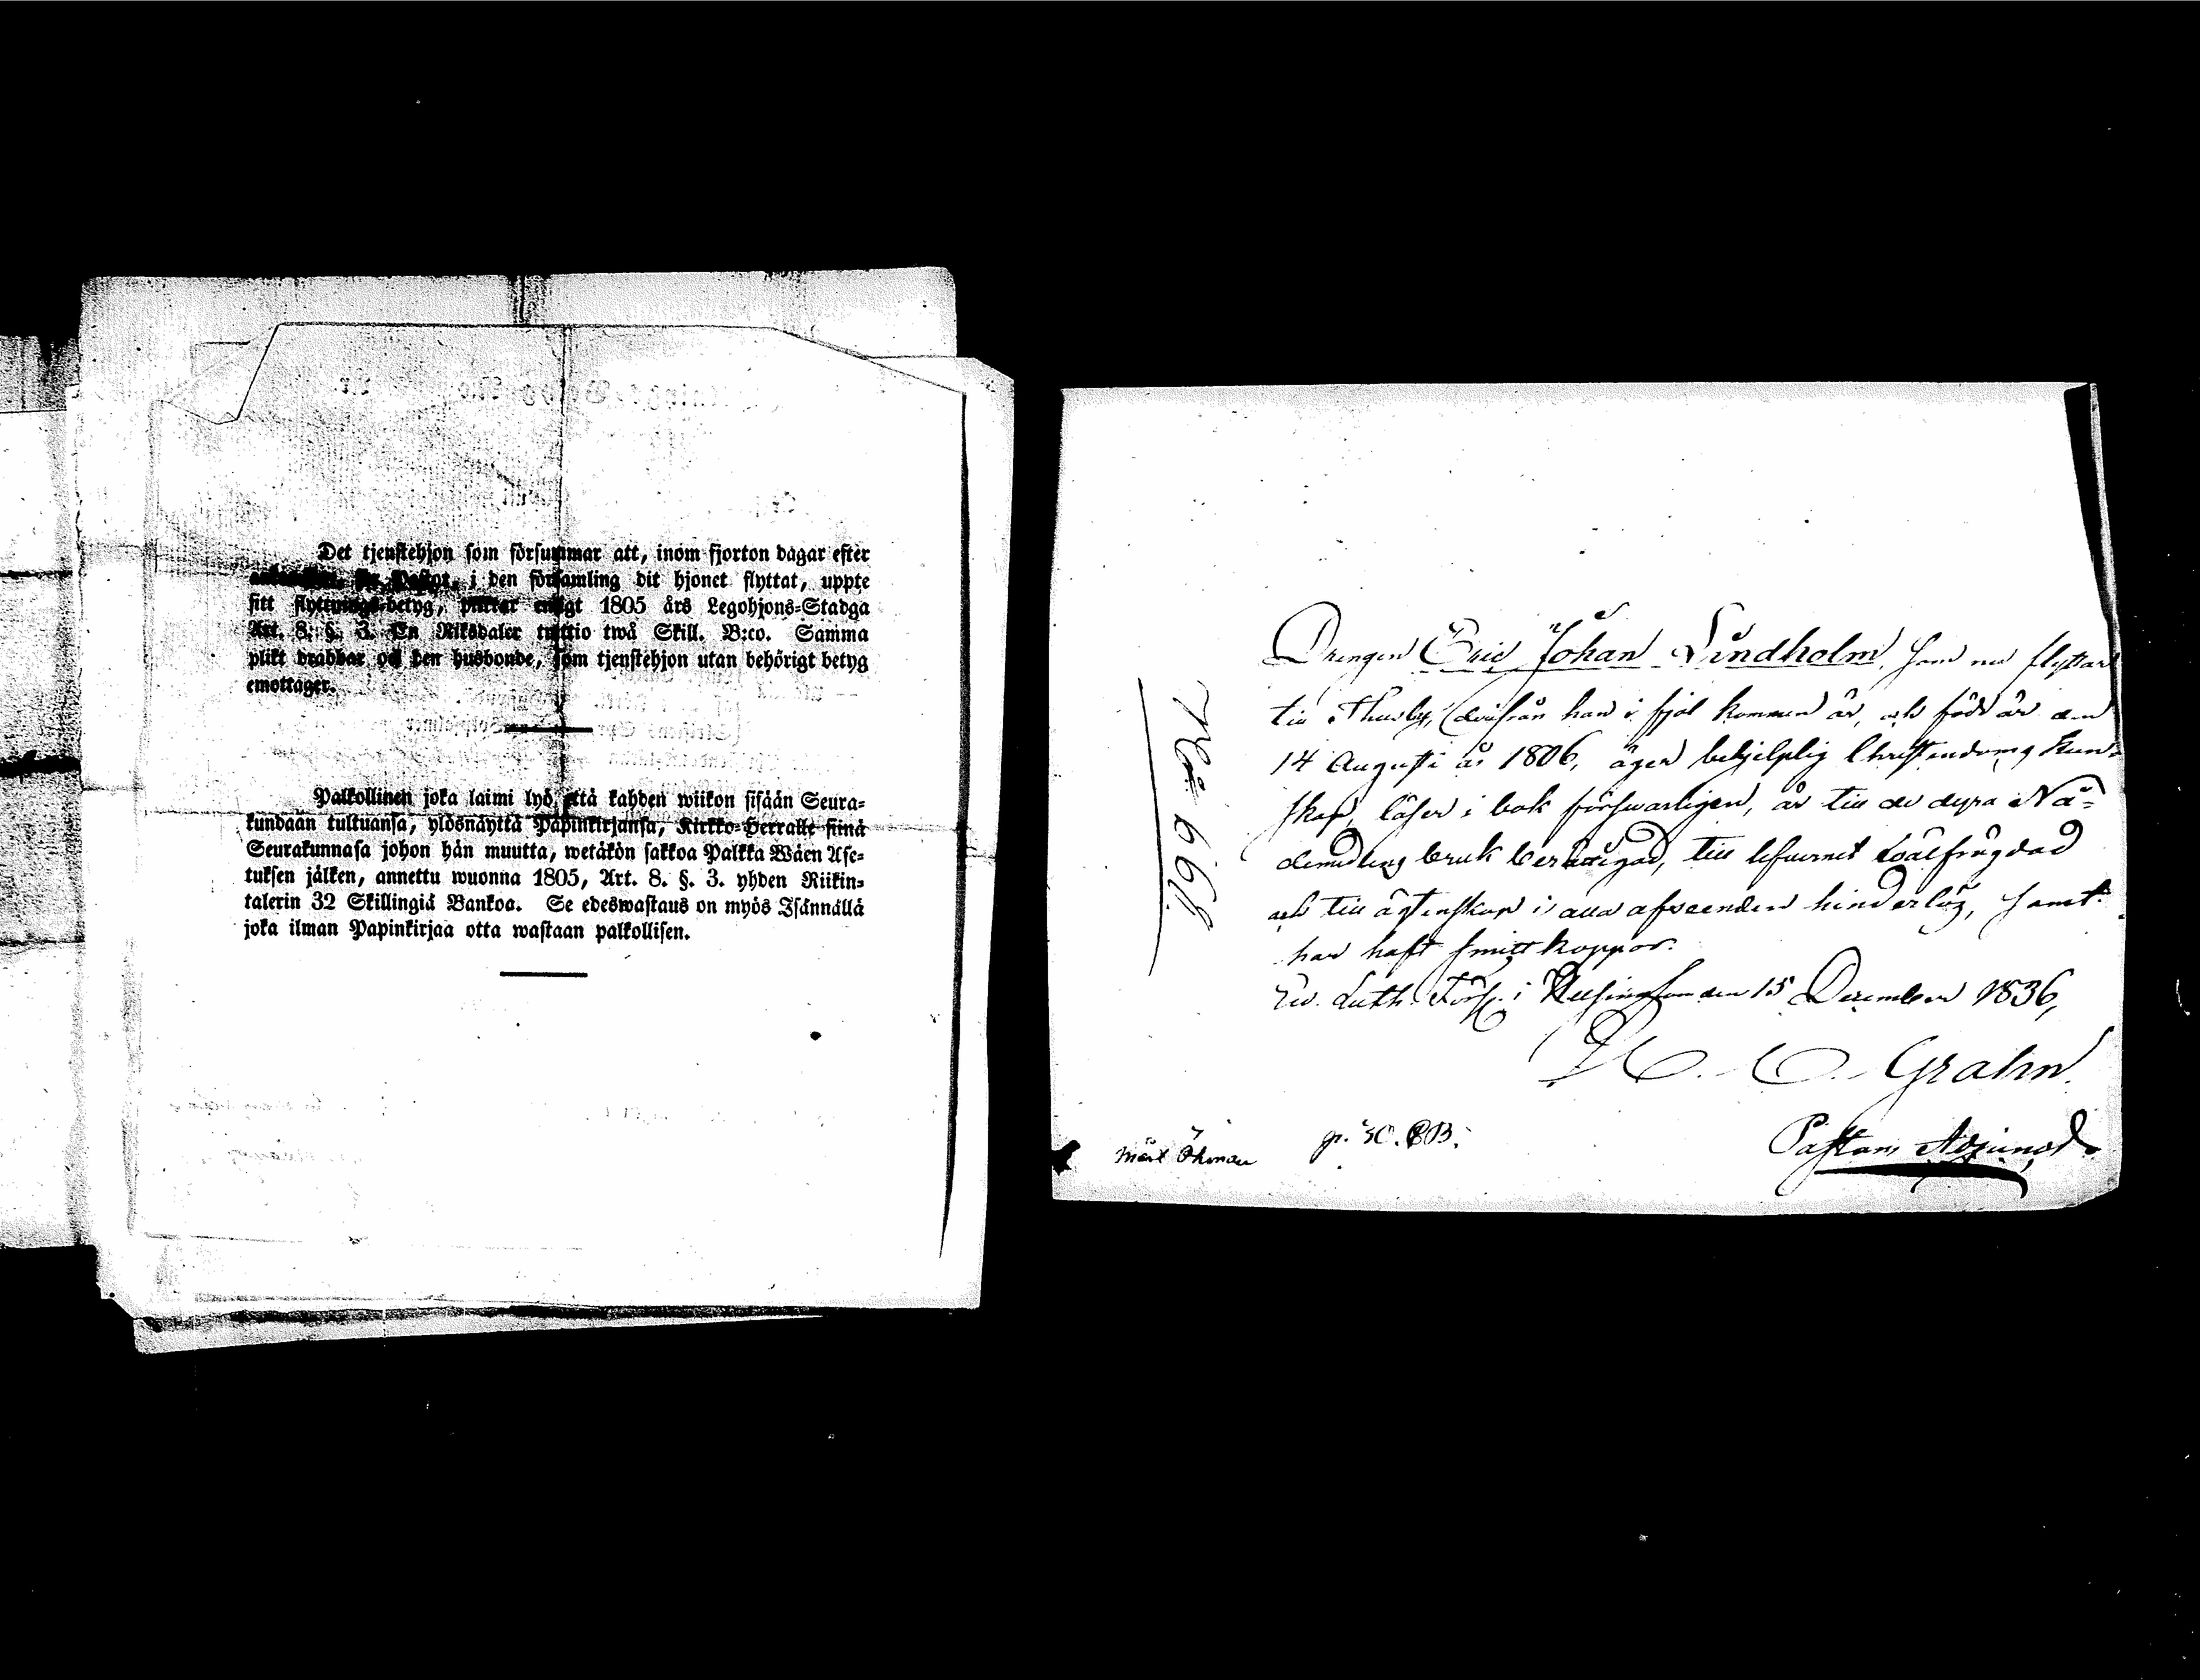 Det tjenstehjon som försummar att, inom fjorton dagar efter
i den församling dit hjonet flyttat, uppte
sitt flyttnings-betyg, pliktar enligt 1805 års Legohjons-Stadga
Art. 8. §. 3. En Riksdaler trettio twå Skill. B:co. Samma
plikt drabbar ock den husbonde, som tjenstehjon utan behörigt betyg
emottager.
Palkollinen joka laimi lyö, että kahden wiikon sisään Seura-
kundaan tultuansa, ylösnäyttä Papinkirjansa, Kirkko-Herralle siinä
Seurakunnasa johon hän muutta, wetäkön sakkoa Palkka Wäen Ase-
tuksen jälken, annettu wuonna 1805, Art. 8. §. 3. yhden Riikin-
talerin 32 Skillingiä Bankoa. Se edeswastaus on myös Isännällä
joka ilman Papinkirjaa otta wastaan palkollisen.
Drengen Eric Johan Lindholm, som nu flyttar
till Thusby, (derifrån han i fjol kommen är, och född är den
14 Augusti år 1806, äger behjelplig Christendoms kun-
skap, läser i bok försvarligen, är till de dyra Nå-
demedlens bruk berättigad, till lefvernet wälfrägdad
och till ägtenskap i alla afseenden hinderlös, samt
har haft smittkoppor.
Ev. Luth. Förs. i Helsingfors den 15 December 1836,
Grahn.
Pastors Adjunct.
No 661.
Öhman
p. 30. BB.